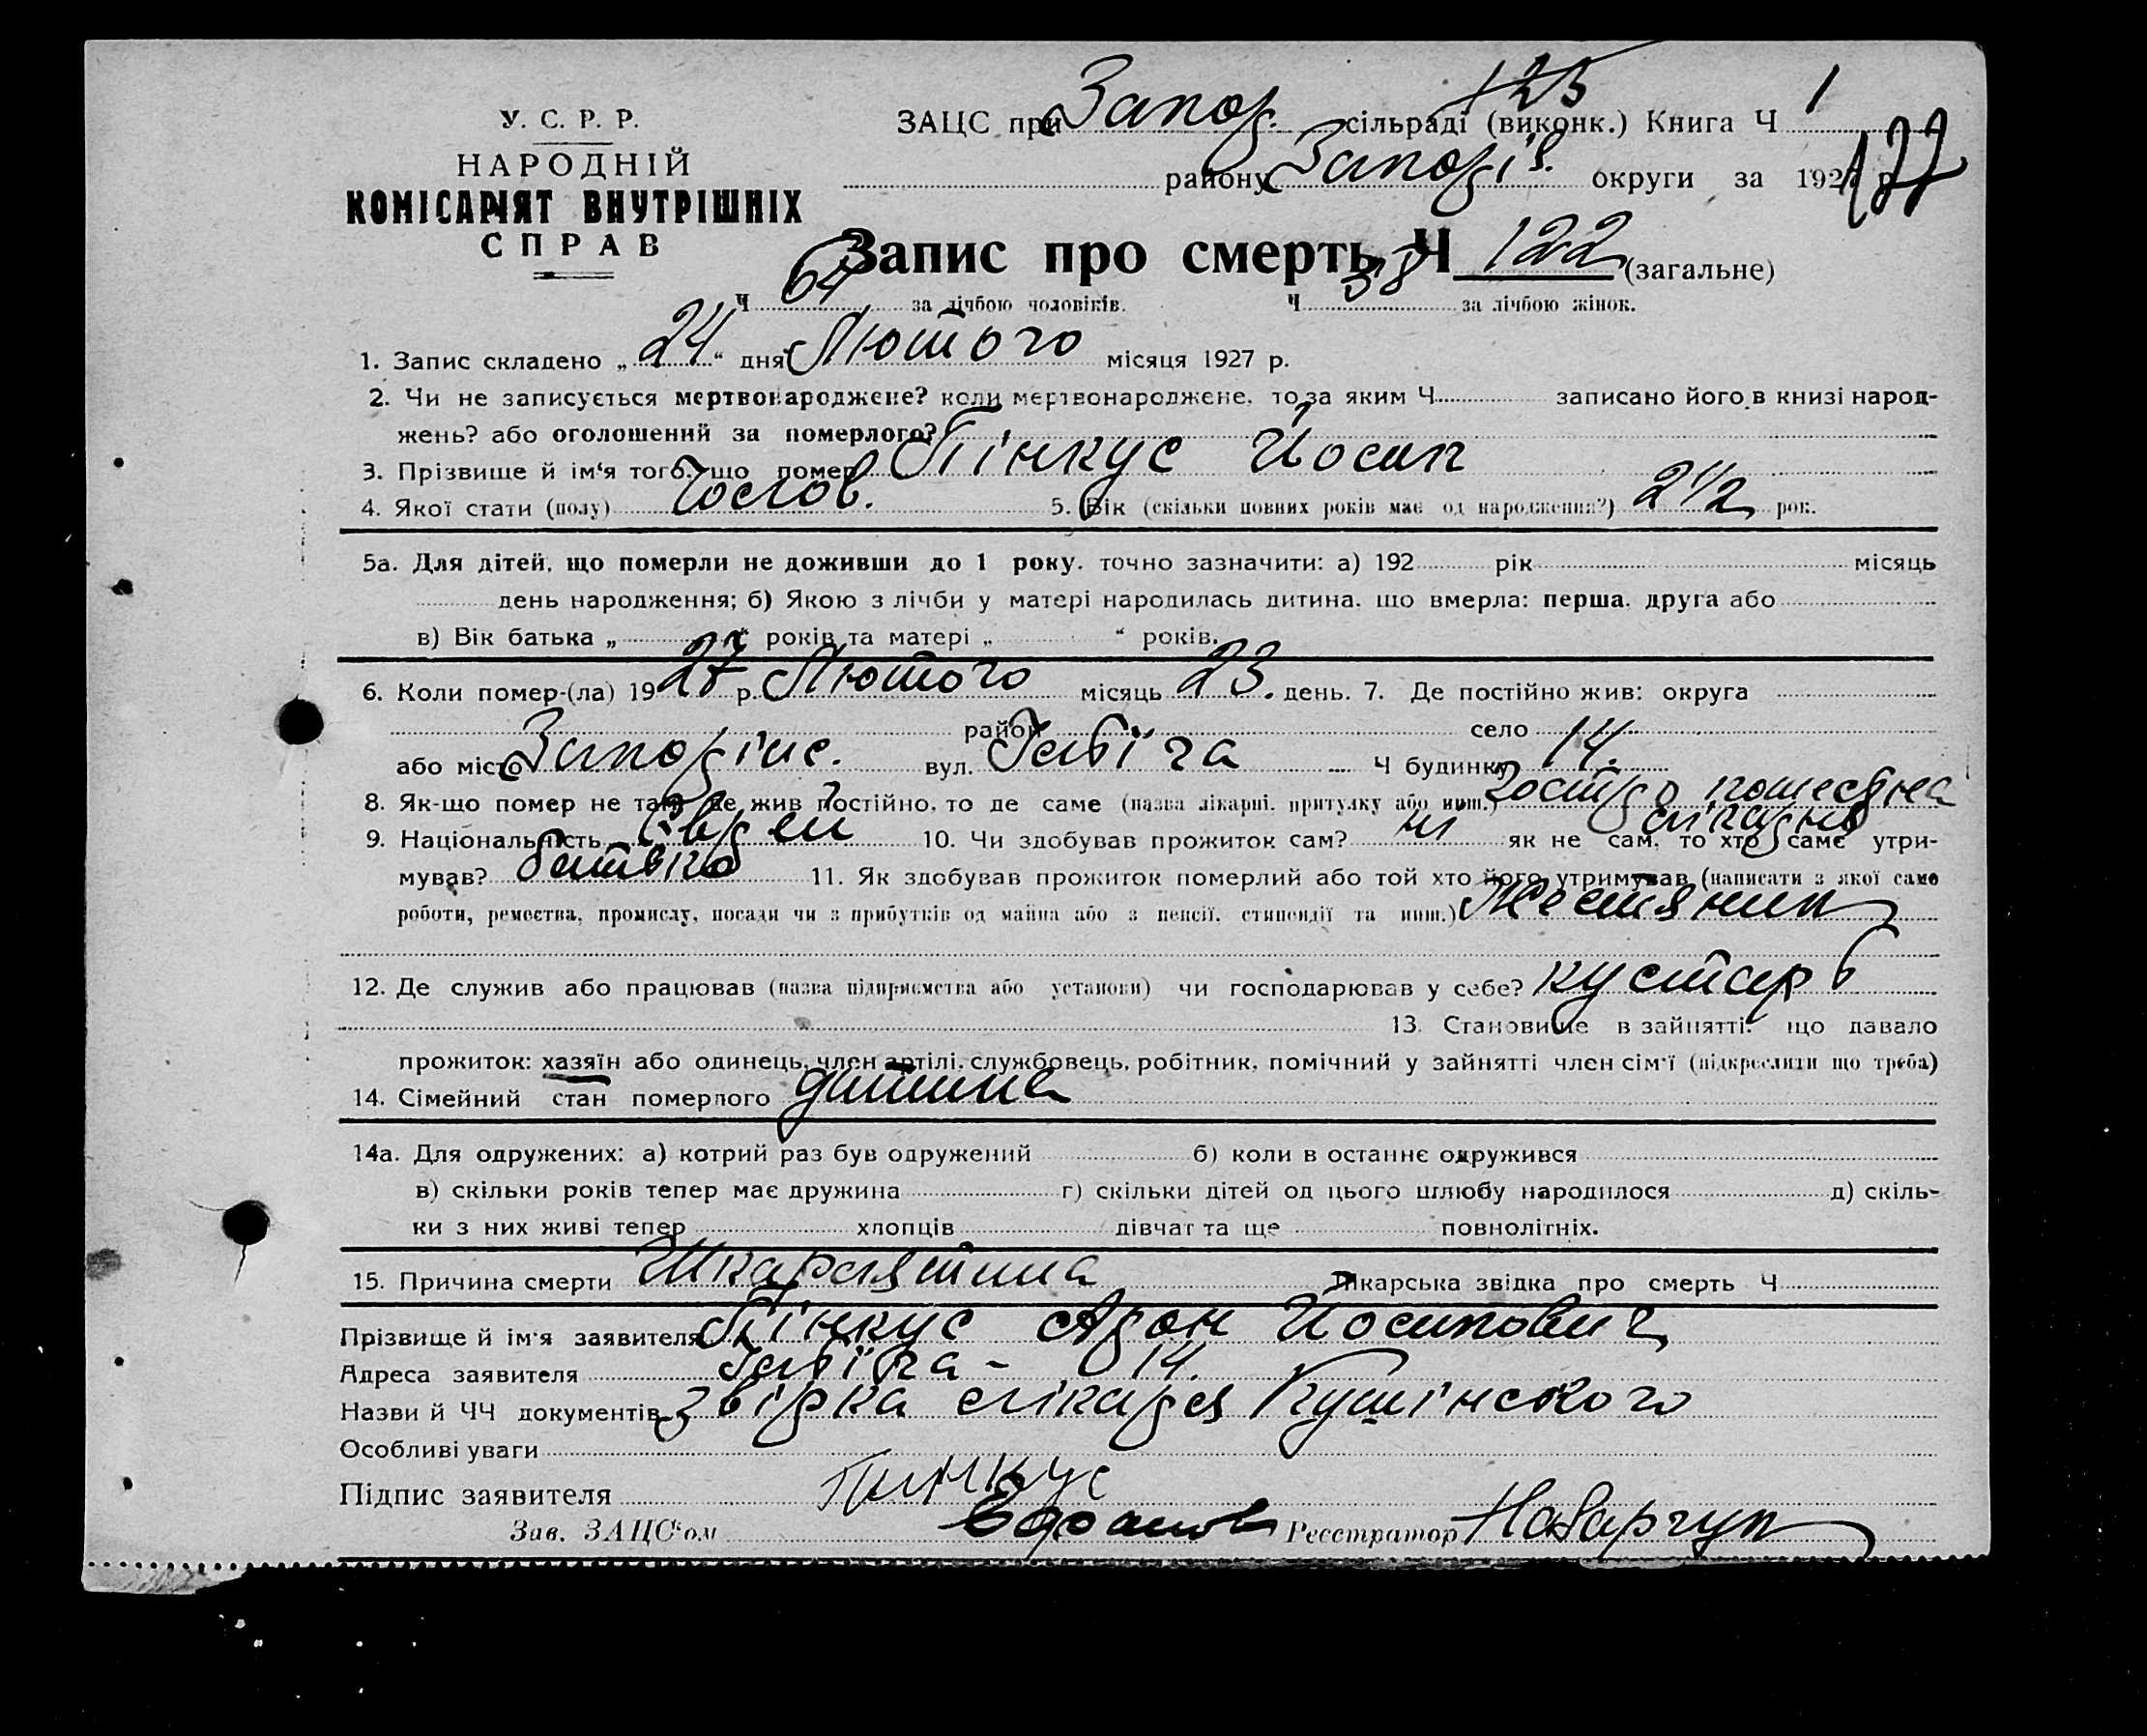 У. С. Р. Р.
НАРОДНІЙ
КОМІСАРІЯТ ВНУТРІШНІХ
СПРАВ
125
ЗАЦС при Запор. сільраді (виконк.) Книга Ч 1
району Запоріз. округи за 192 р.
122
Запис про смерть Ч 122 (загальне)
Ч 64 за лічбою чоловіків. Ч 58 за лічбою жінок.
1. Запис складено „ 24 “ дня Лютого місяця 1927 р.
2. Чи не записується мертвонароджене? коли мертвонароджене, то за яким Ч записано його в книзі народ-
жень? або оголошений за померлого?
3. Прізвище й ім‘я того, що помер Пінкус Йосип
4. Якої стати (полу) Чолов. 5. Вік (скільки повних років має од народження?) 2 1/2 рок.
5а. Для дітей, що померли не доживши до 1 року, точно зазначити: а) 192 рік місяць
день народження; б) Якою з лічби у матері народилась дитина, що вмерла: перша, друга або
в) Вік батька „ “ років та матері „ “ років.
6. Коли помер-(ла) 1927 р. Лютого місяць 23. день. 7. Де постійно жив: округа
район село
або місто Запоріже. вул. Ч будинку 14.
8. Як-що помер не там, де жив постійно, то де саме (назва лікарні, притулку або инш.) Гостро пошесна
лікарня
9. Національність Єврей 10. Чи здобував прожиток сам? ні як не сам, то хто саме утри-
мував? батько 11. Як здобував прожиток померлий або той хто його утримував (написати з якої само
роботи, ремества, промислу, посади чи з прибутків од майна або з пенсії, стипендії та инш.) Жестяник
12. Де служив або працював (назва підприємства або установи) чи господарював у себе? кустарь
13. Становище в зайнятті, що давало
прожиток: хазяїн або одинець, член артілі, службовець, робітник, помічний у зайнятті член сім'ї (підкреслити що треба)
14. Сімейний стан померлого дитина
14а. Для одружених: а) котрий раз був одружений б) коли в останнє одружився
в) скільки років тепер має дружина г) скільки дітей од цього шлюбу народилося д) скіль-
ки з них живі тепер хлопців дівчат та ще повнолітніх.
15. Причина смерти Шкарлятина Лікарська звідка про смерть Ч
Прізвище й ім'я заявителя Пінкус Арон Йосипович
Адреса заявителя 14.
Назви й ЧЧ документів звірка лікаря Кушінського
Особливі уваги
Підпис заявителя Пинкус
Зав. ЗАЦС‘ом Реєстратор